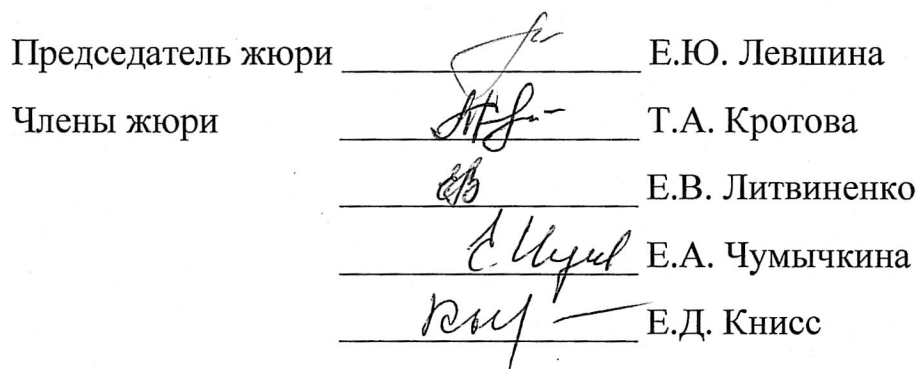 Председатель жюри Е.Ю. Левшина
Члены жюри Т.А. Кротова
Е.В. Литвиненко
Е.А. Чумычкина
Е.Д. Книсс